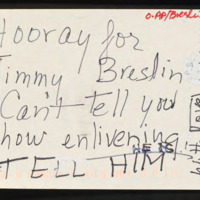 O-AP/Breslin
Hooray for
Jimmy Breslin
Can't tell you
how enlivening
HE IS!
TELL HIM